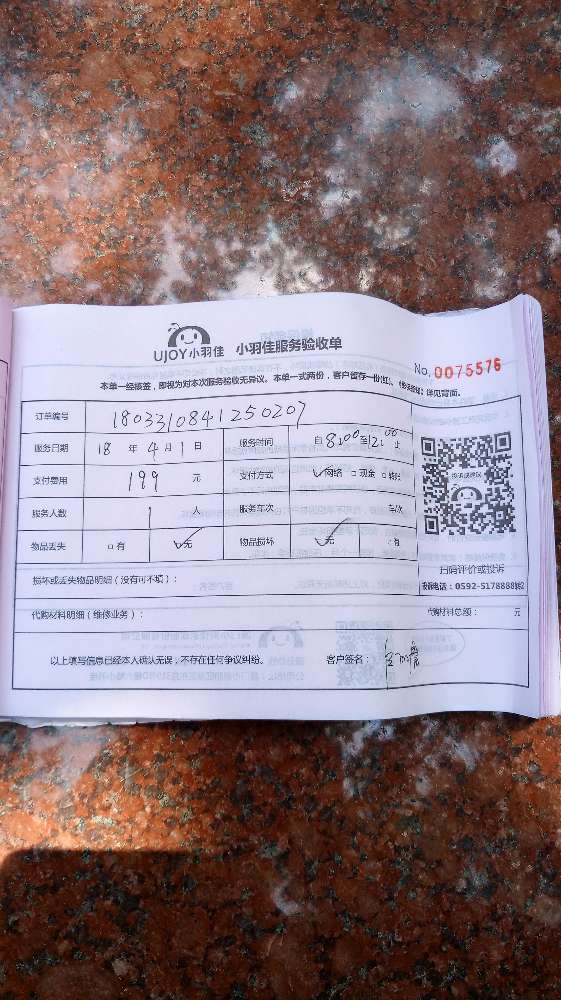 UJOY小羽佳 小羽佳服务验收单
No. 0075576
本单一经核签，即视为对本次服务验收无异议。本单一式两份，客户留存一份(红)。《投保须知》详见背面。
订单编号 1803310841250207
服务日期 18 年 4 月 1 日 服务时间 自 8:00 至 12:00 止
支付费用 199 元 支付方式 ✓网络 □现金 □转账
服务人数 1 人 服务车次 车/次
物品丢失 □有 ✓无 物品损坏 ✓无 □有
扫码评价或投诉
损坏或丢失物品明细（没有可不填）：
客服电话：0592-5178888转2
代购材料明细（维修业务）：
代购材料总额： 元
以上填写信息已经本人确认无误，不存在任何争议纠纷。 客户签名：